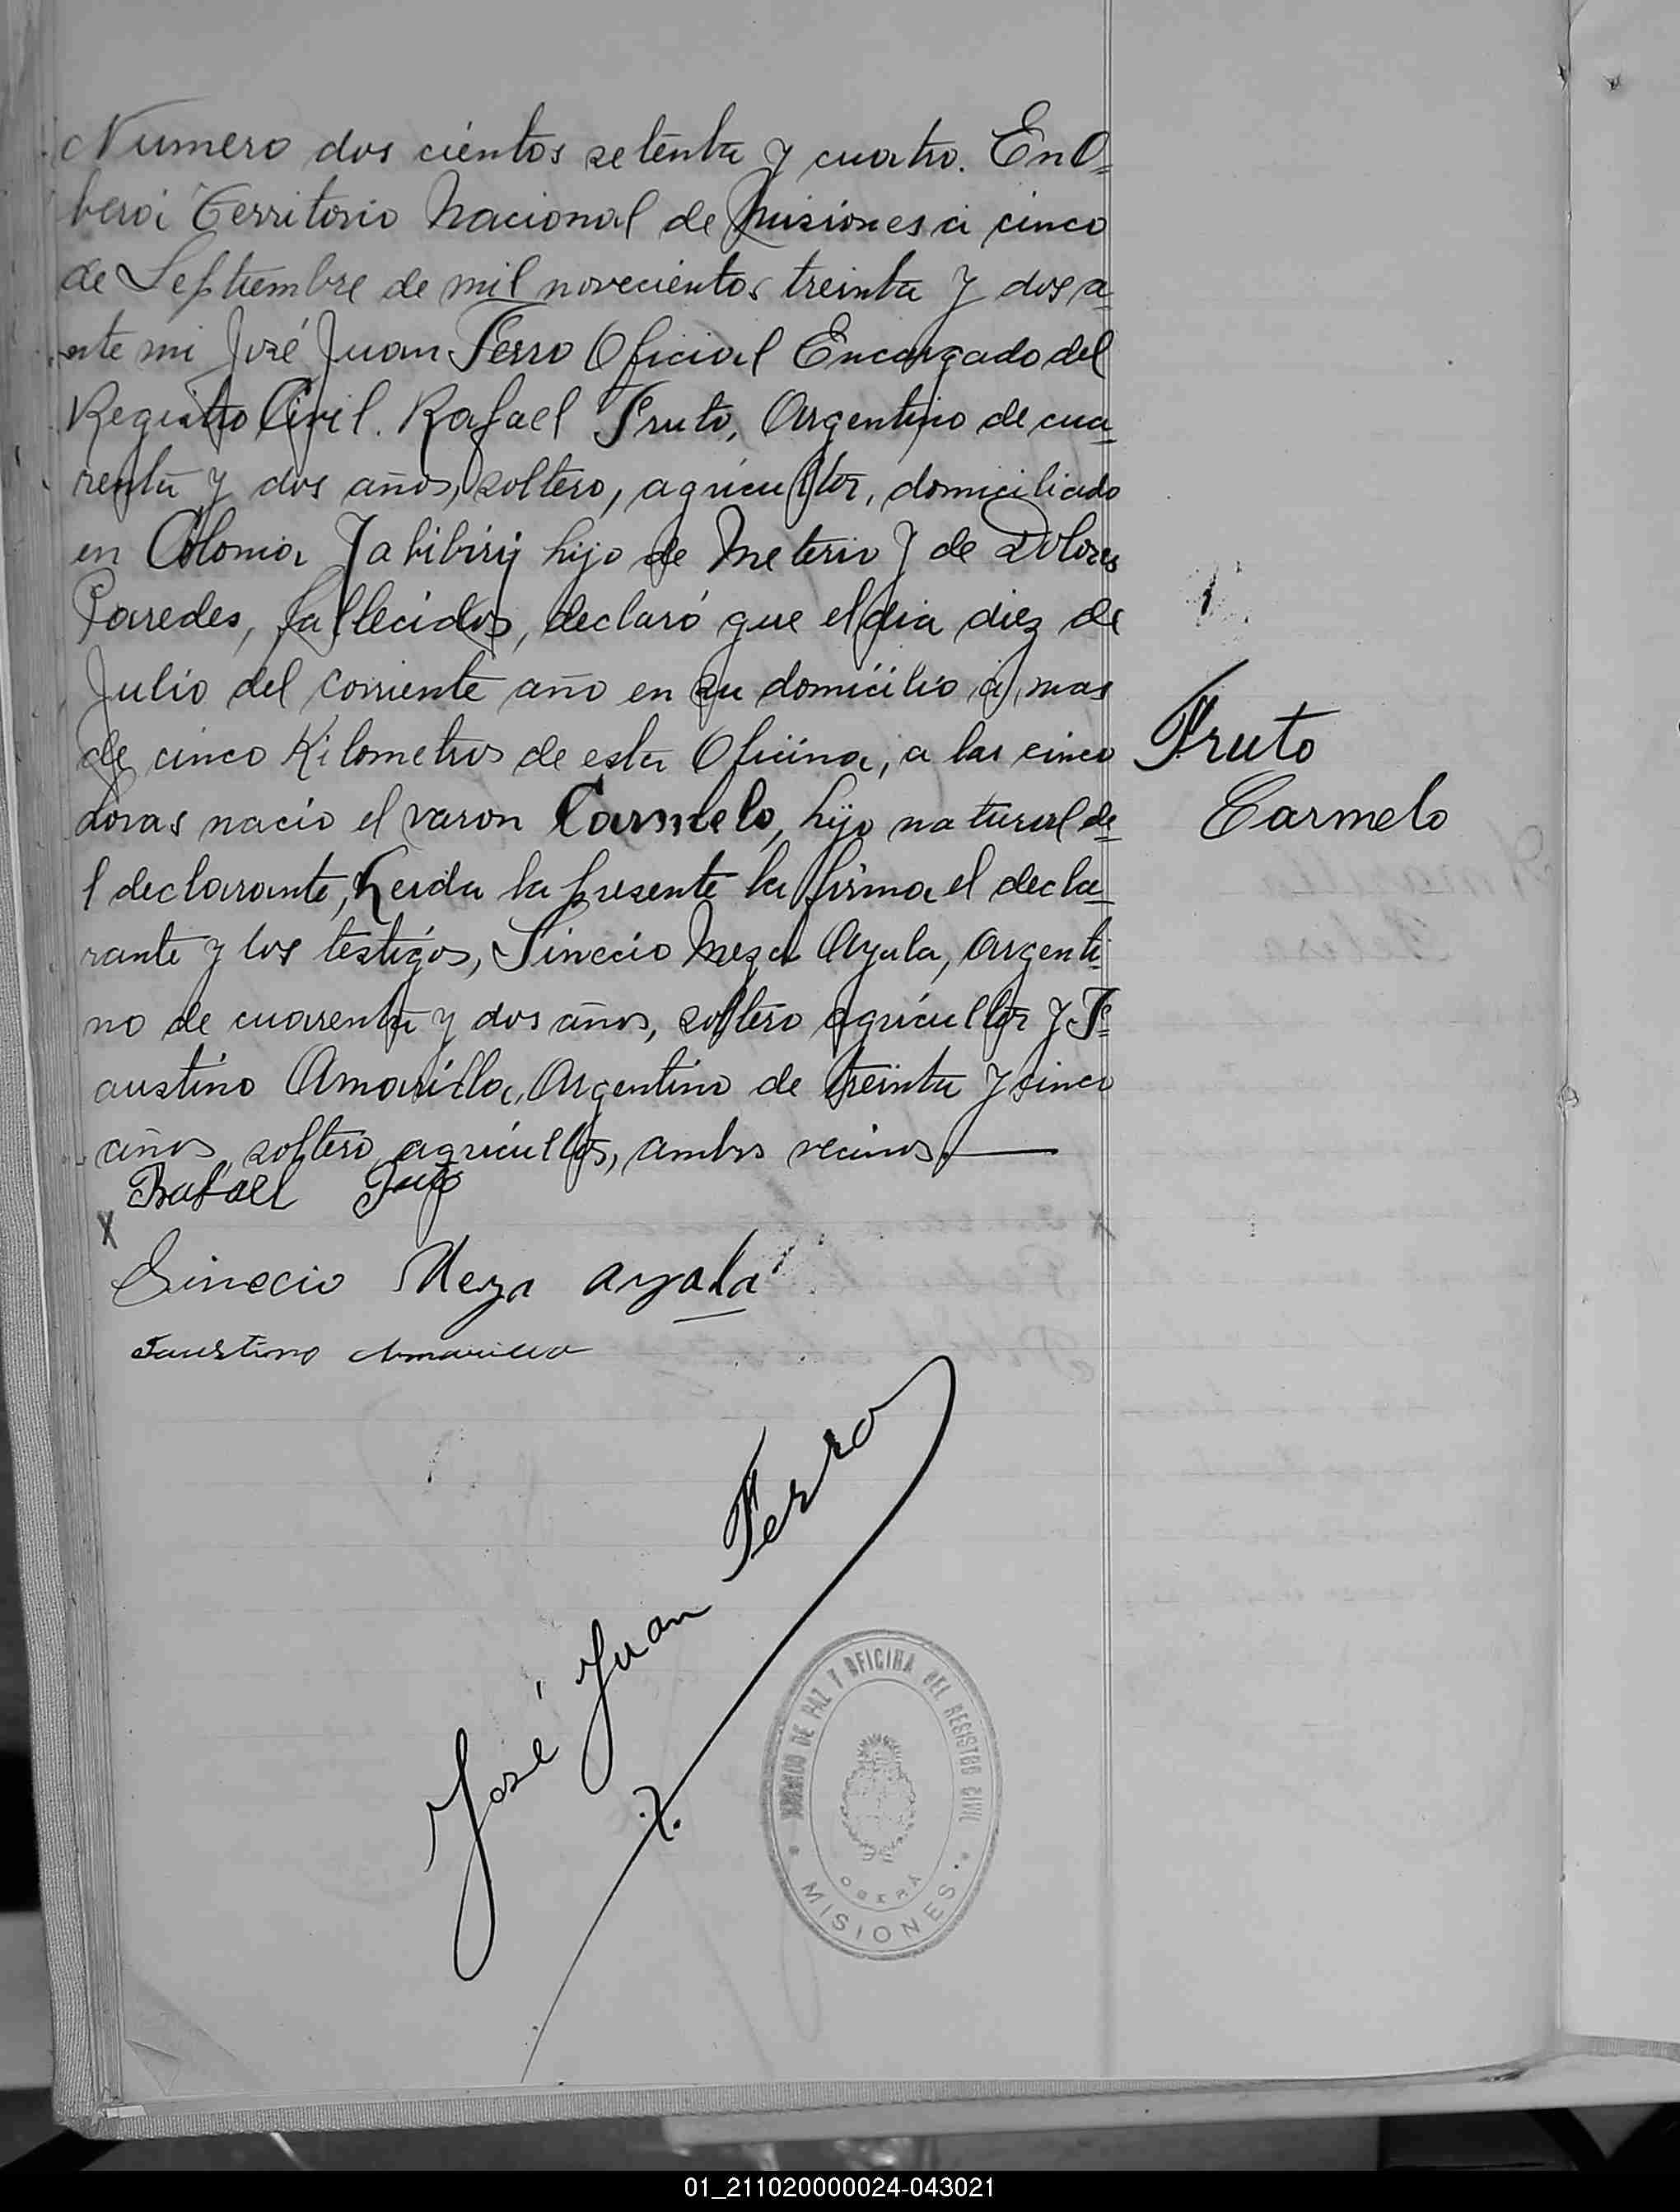 Numero dos cientos setenta y cuatro. En O=
berá Territorio Nacional de Misiones á cinco
de Septiembre de mil novecientos treinta y dos a=
nte mi José Juan Ferro Oficial Encargado del
Registro Civil. Rafael Fruto, Argentino de cua=
renta y dos años, soltero, agricultor, domiciliado
en Colonia Yabibiry hijo de Meterio y de Dolores
Paredes, fallecidos, declaró que el dia diez de
Julio del corriente año en su domicilio, á, mas
de cinco Kilometros de esta Oficina, a las cinco
horas nació el varon Carmelo, hijo natural de=
l declarante, Leida la presente la firma el decla=
rante y los testigos, Sinecio Meza Ayala, Argenti=
no de cuarenta y dos años, soltero agricultor y F=
austino Amarilla, Argentino de treinta y cinco
años, soltero, agricultor, ambos vecinos.
Fruto
Carmelo
Rafael
X
Sinecio Meza ayala
Faustino Amarilla
José Juan Ferro
JUZGADO DE PAZ Y OFICINA DEL REGISTRO CIVIL
OBERÁ
MISIONES
01_211020000024-043021